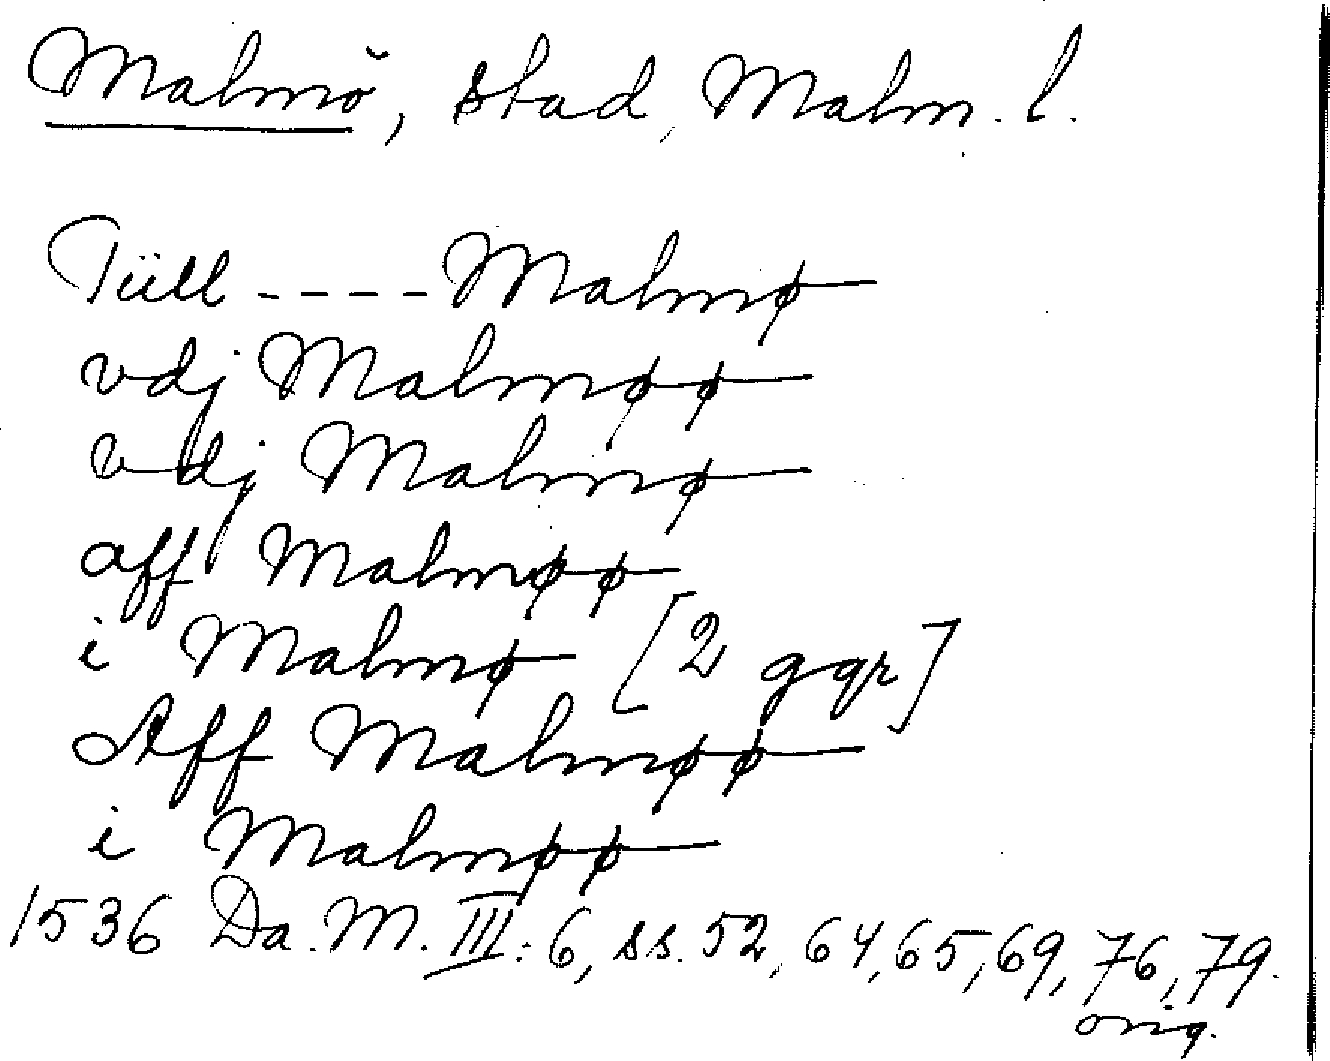 Malmö, stad, Malm. l.
Tiill ---- Malmø
vdj Malmøø
vdj Malmø
aff Malmøø
i Malmø [2 ggr]
Aff Malmøø
i Malmøø
1536 Da. M. III: 6, ss. 52, 64, 65, 69, 76, 79.
orig.